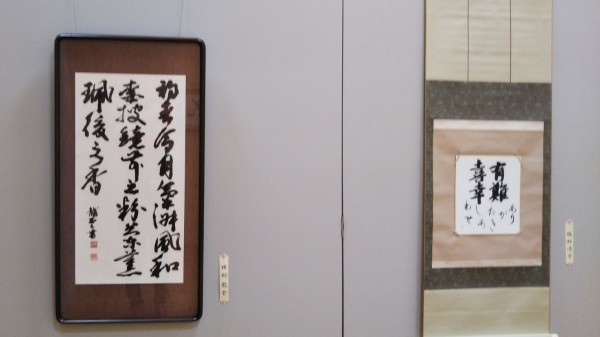 初春令月氣淑風和
梅披鏡前之粉蘭薫
珮後之香
有難
喜幸
ありがたき
しあわせ